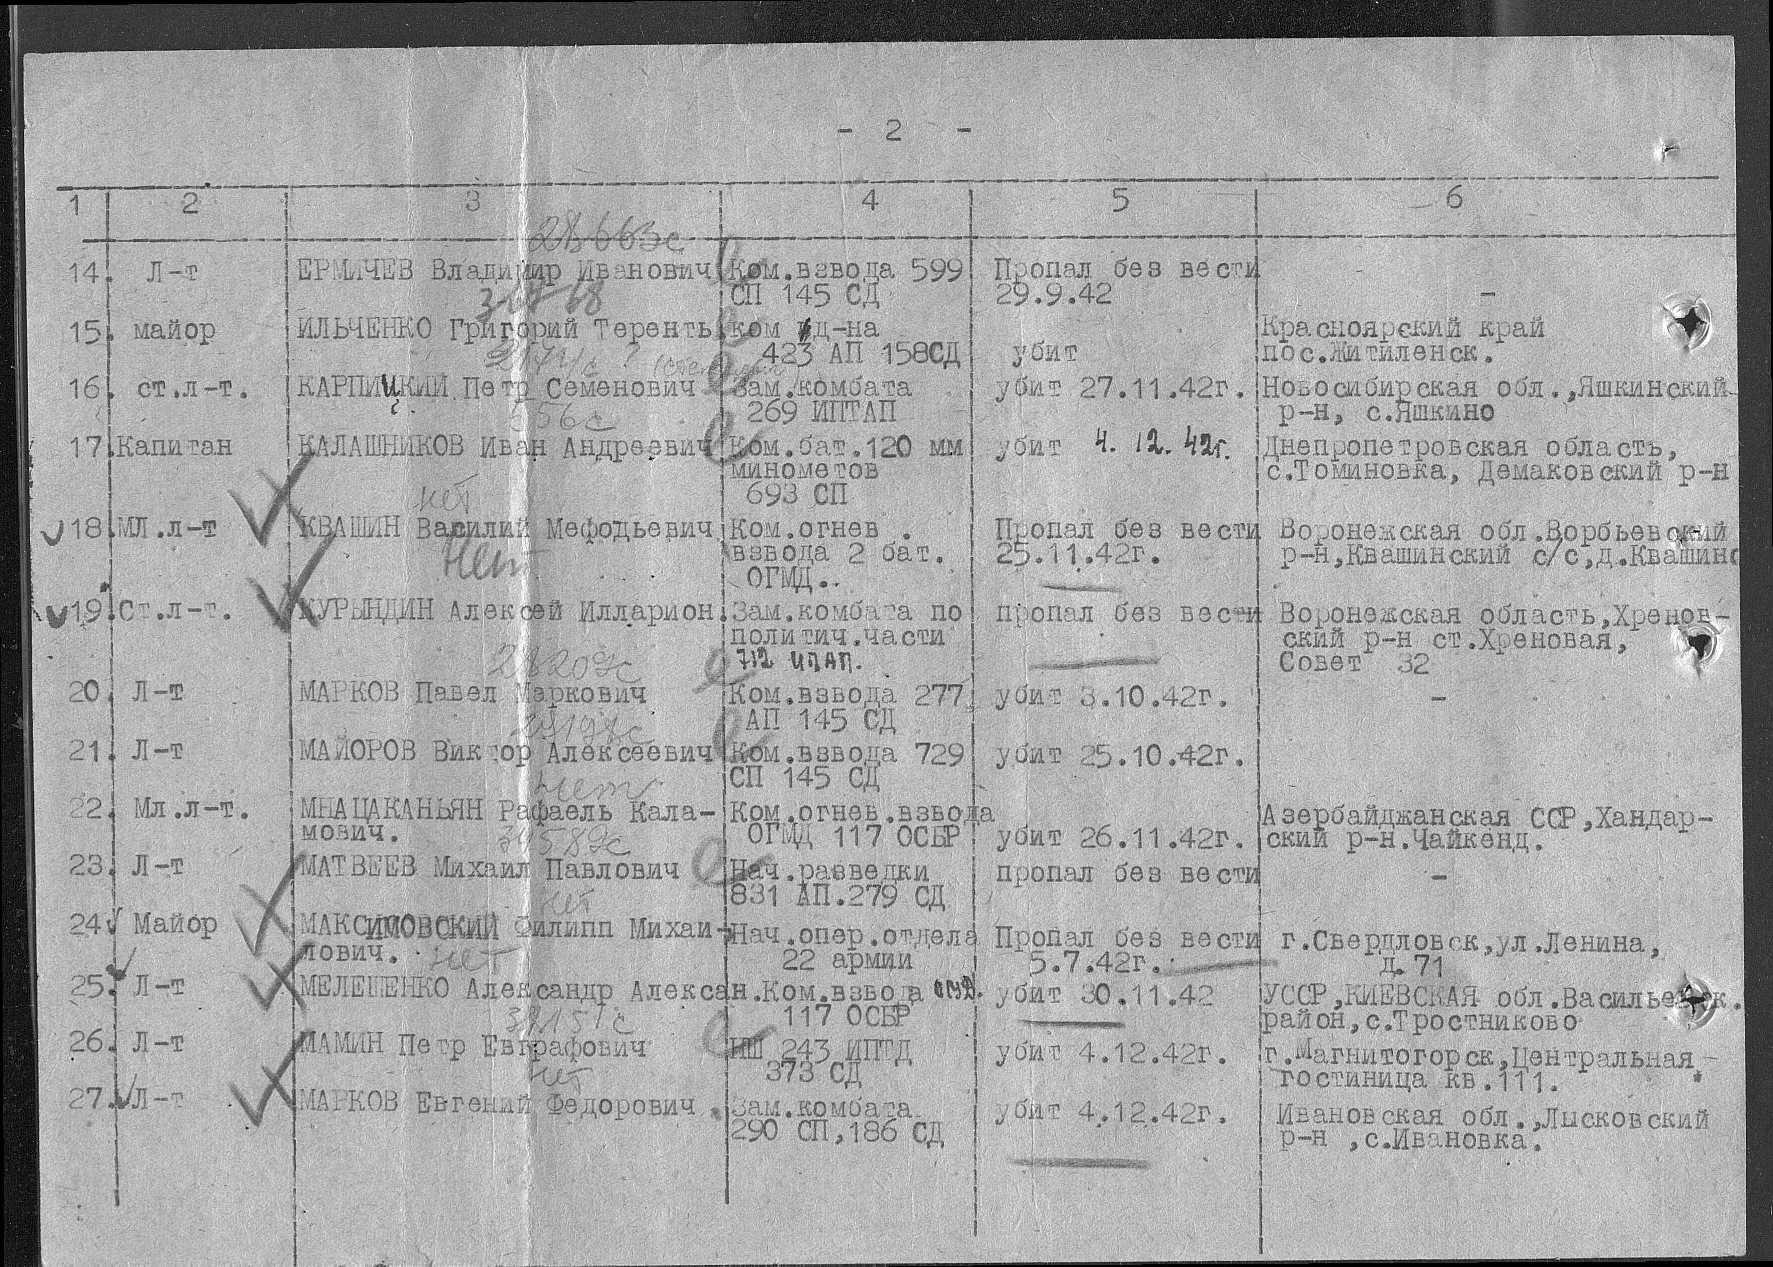 - 2 -
1 2 3 4 5 6
28663с
14. Л-т ЕРМИЧЕВ Владимир Иванович Ком.взвода 599 Пропал без вести -
СП 145 СД 29.9.42
15. майор ИЛЬЧЕНКО Григорий Теренть. ком д-на Красноярский край
423 АП 158СД убит пос.Житиленск.
16. ст.л-т. КАРПИЦКИЙ Петр Семенович Зам.комбата убит 27.11.42г. Новосибирская обл.,Яшкинский
556с 269 ИПТАП р-н, с.Яшкино
17.Капитан КАЛАШНИКОВ Иван Андреевич Ком.бат.120 мм убит 4.12.42г. Днепропетровская область,
минометов с.Томиновка, Демаковский р-н
нет 693 СП
18.МЛ.л-т КВАШИН Василий Мефодьевич Ком.огнев. Пропал без вести Воронежская обл.Ворбьевский
Нет взвода 2 бат. 25.11.42г. р-н,Квашинский с/с,д.Квашино
ОГМД..
19.Ст.л-т. КУРЫНДИН Алексей Илларион. Зам.комбата по пропал без вести Воронежская область,Хренов-
политич.части ский р-н ст.Хреновая,
28209с 712 ИПАП. Совет 32
20. Л-т МАРКОВ Павел Маркович Ком.взвода 277 убит 3.10.42г. -
АП 145 СД
21. Л-т МАЙОРОВ Виктор Алексеевич Ком.взвода 729 убит 25.10.42г.
Нет СП 145 СД
22. Мл.л-т. МНАЦАКАНЬЯН Рафаель Кала- Ком.огнев.взвода Азербайджанская ССР,Хандар-
мович. ОГМД 117 ОСБР убит 26.11.42г. ский р-н.Чайкенд.
23. Л-т МАТВЕЕВ Михаил Павлович Нач.разведки пропал без вести -
нет 831 АП.279 СД
24. Майор МАКСИМОВСКИЙ Филипп Михаи- Нач.опер.отдела Пропал без вести г.Свердловск,ул.Ленина,
лович. нет 22 армии 5.7.42г. д.71
25. Л-т МЕЛЕШЕНКО Александр Алексан. Ком.взвода убит 30.11.42 УССР,КИЕВСКАЯ обл.Васильевск.
34151с 117 ОСБР район,с.Тростниково
26. Л-т МАМИН Петр Евграфович НШ 243 ИПТД убит 4.12.42г. г.Магнитогорск,Центральная
нет 373 СД гостиница кв.111.
27. Л-т МАРКОВ Евгений Федорович. Зам.комбата убит 4.12.42г. Ивановская обл.,Лысковский
290 СП,186 СД р-н ,с.Ивановка.